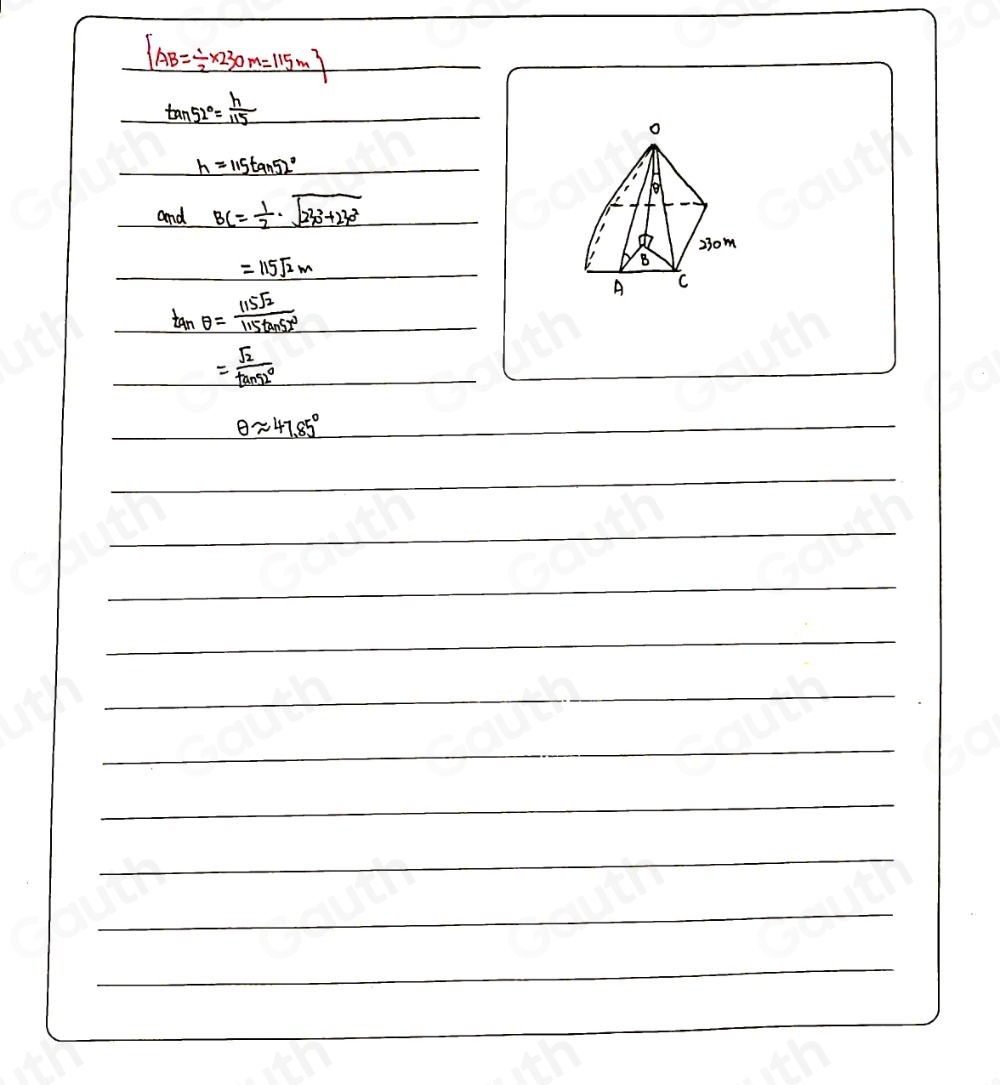 {AB=½×230m=115m}
tan52°=h/115
h=115tan52°
and BC=1/2·√230²+230²
=115√2m
tan θ=115√2/115tan52°
=√2/tan52°
θ≈47.85°
O
θ
230m
B
A C
Gauth